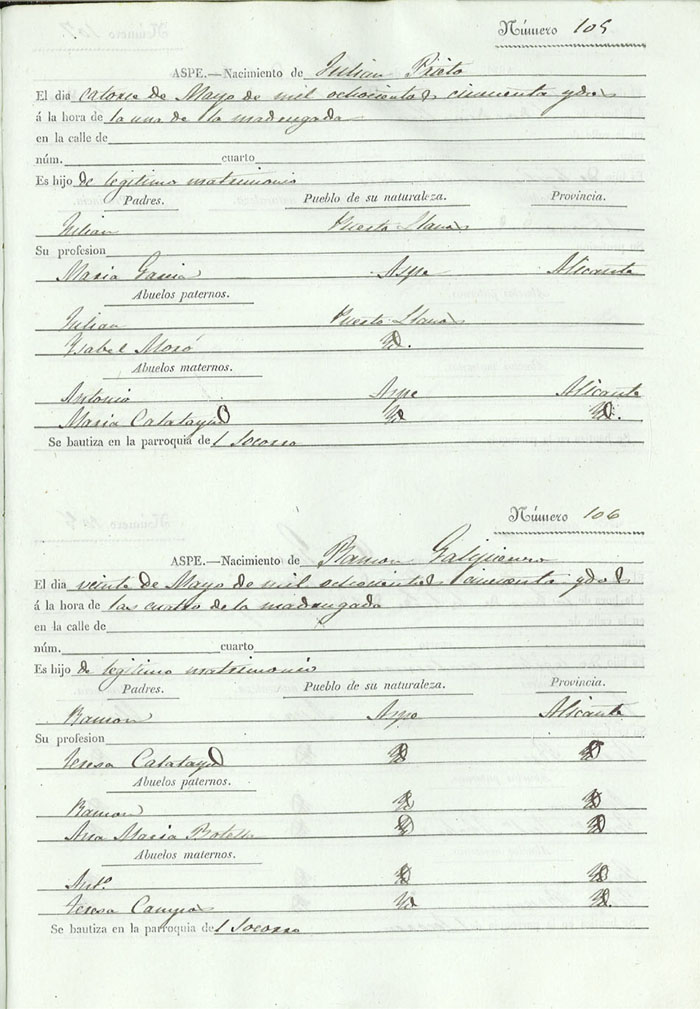 Número 105
ASPE.—Nacimiento de Julian Prieto
El dia catorse de Mayo de mil ochocientos cincuenta y dos
á la hora de la una de la madrugada
en la calle de
núm. cuarto
Es hijo de legitimo matrimonio
Padres. Pueblo de su naturaleza. Provincia.
Julian Puerto Llano
Su profesion
Maria Garcia Aspe Alicante
Abuelos paternos.
Julian Puerto Llano
Ysabel Moró Yd.
Abuelos maternos.
Antonio Aspe Alicante
Maria Calatayud Yd Yd.
Se bautiza en la parroquia del Socorro
Número 106
ASPE.—Nacimiento de Ramon
El dia veinte de Mayo de mil ochocientos cincuenta y dos
á la hora de las cuatro de la madrugada
en la calle de
núm. cuarto
Es hijo de legitimo matrimonio
Padres. Pueblo de su naturaleza. Provincia.
Ramon Aspe Alicante
Su profesion
Teresa Calatayud Yd Yd
Abuelos paternos.
Ramon Yd Yd
Ana Maria Botella Yd Yd
Abuelos maternos.
Antº Yd Yd
Teresa Campos Yd Yd.
Se bautiza en la parroquia del Socorro